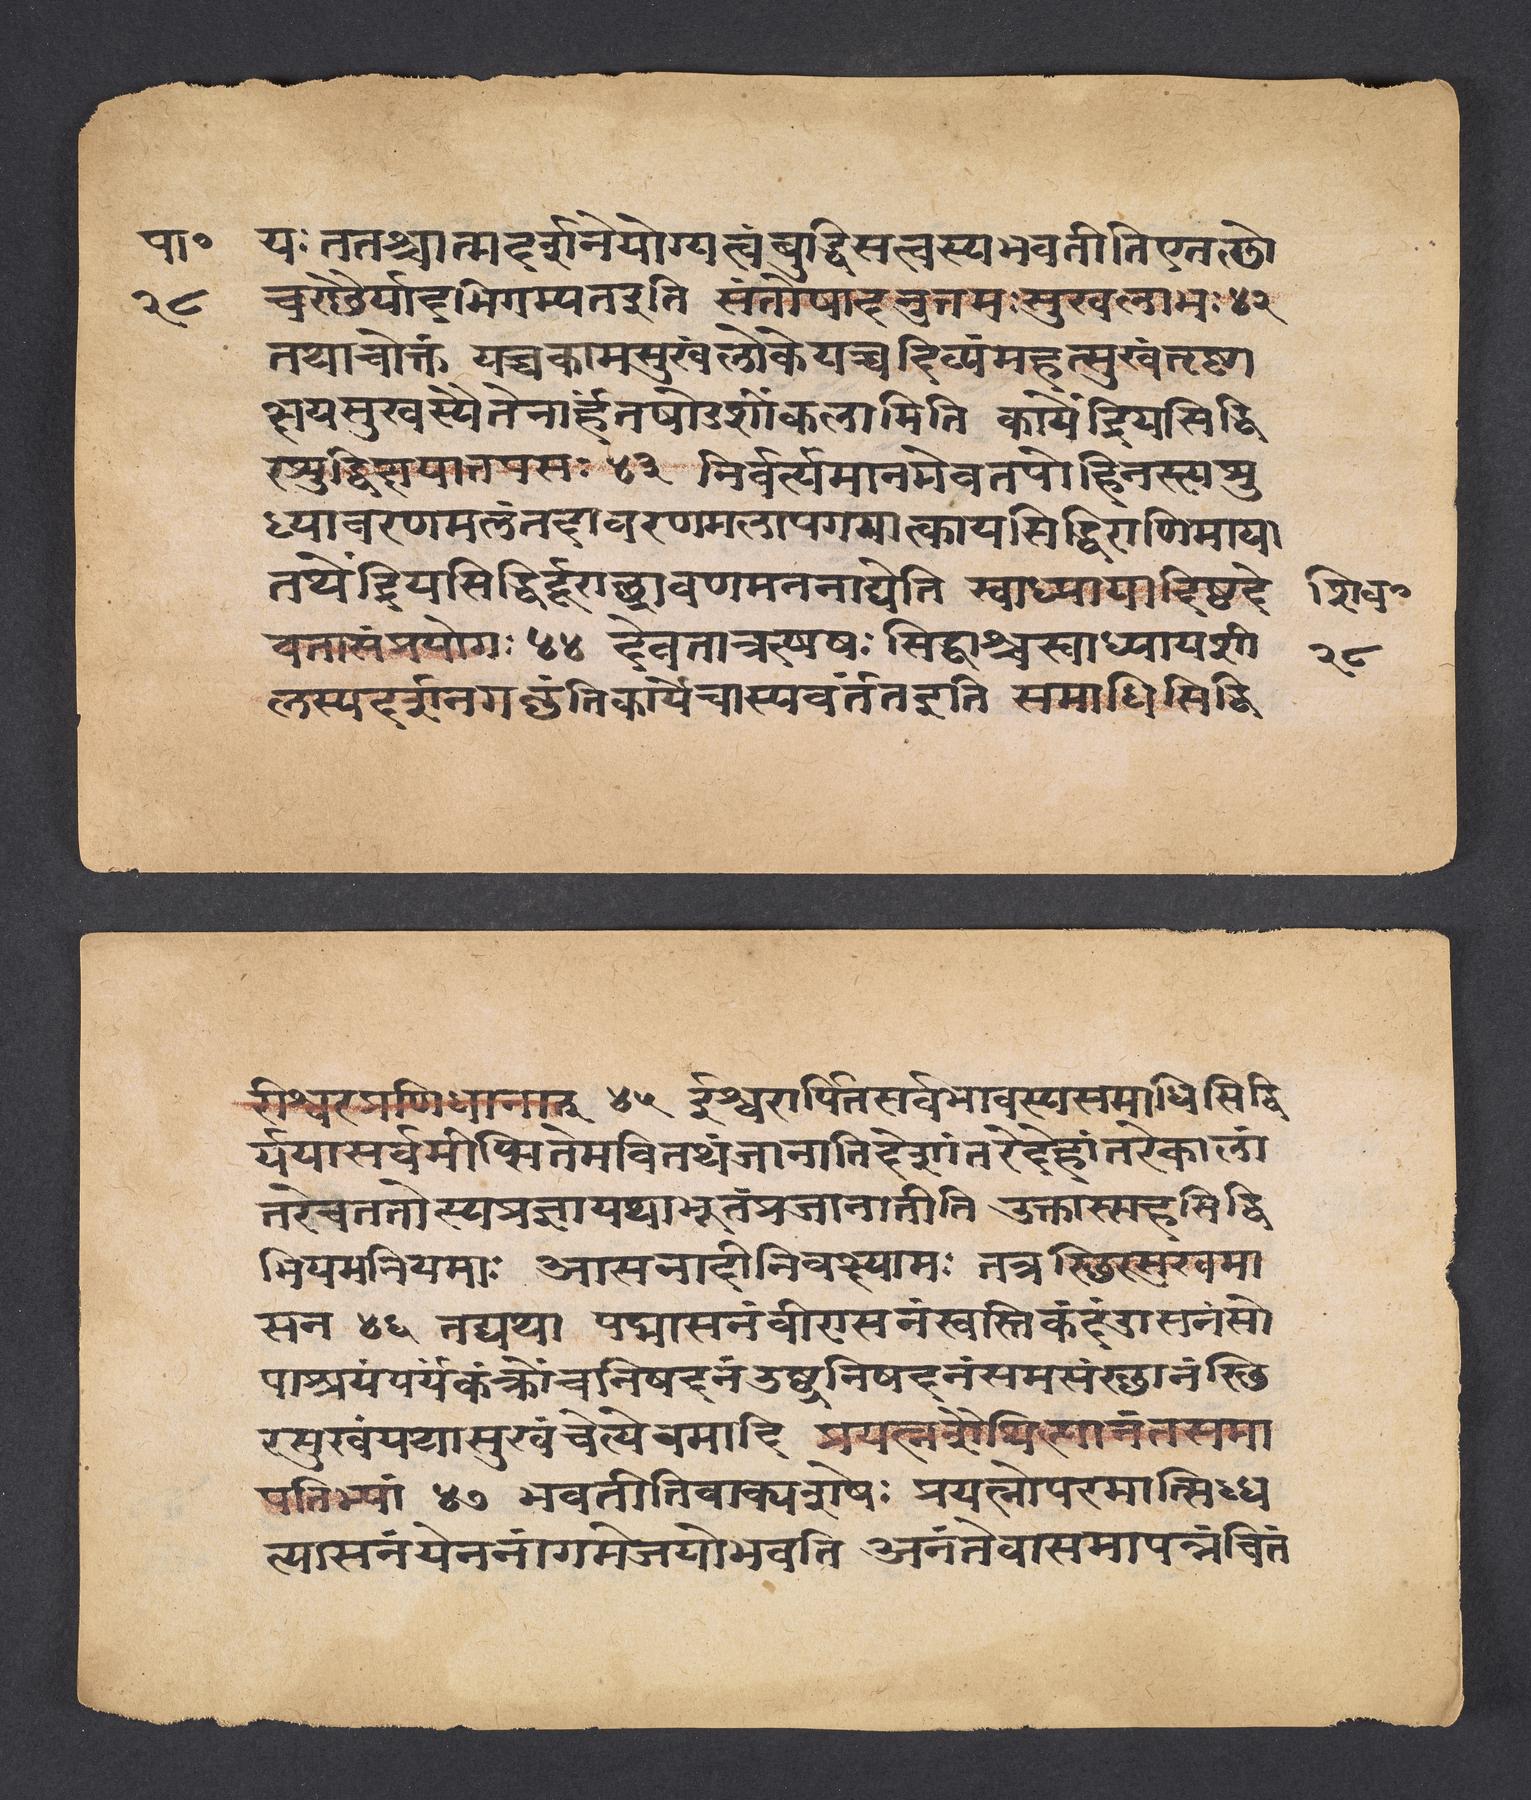 पा॰ यः ततश्चात्मदर्शनेयोग्यत्वंबुद्धिसत्वस्यभवतीतिएतछौ
२८ चस्थैर्यादभिगम्यतइति संतोषादनुत्तमःसुखलाभः ४२
तथाचोक्तं यच्चकामसुखंलोकेयच्चदिव्यंमहत्सुखंतृष्णा
क्षयसुखस्यैतेनार्हतषोडशींकलामिति कायेंद्रियसिद्धि
रशुद्धिक्षयात्तपसः ४३ निर्वर्त्यमानमेवतपोहिनस्त्यशु
ध्यावरणमलंतदावरणमलापगमात्कायसिद्धिरणिमाद्या
तथेंद्रियसिद्धिर्दूराछ्रवणमननाद्येति स्वाध्यायादिष्टदे शिव॰
वतासंप्रयोगः ४४ देवतान्रत्षषः सिद्धाश्चस्वाध्यायशी २८
लस्यदर्शनगछंतिकार्येचास्यवर्ततइति समाधिसिद्धि
रीश्वरप्रणिधानात् ४५ ईश्वरार्पितसर्वभावस्यसमाधिसिद्धि
र्ययासर्वमीप्सितेमवितथंजानातिदेशांतरेदेहांतरेकालां
तरेचततोस्यप्रज्ञायथाभूतंप्रजानातीति उक्तास्सहसिद्धि
भियमनियमाः आसनादीनिवक्ष्यामः तत्रस्थिरसुखमा
सन ४६ तद्यथा पद्मासनंवीरासनंस्वस्तिकंदंडासनंसो
पाश्रयंपर्यंकंक्रौंचनिषदनंउष्ट्रनिषदनंसमसंस्थानंस्थि
रसुखंयथासुखंचेत्येवमादि प्रयत्नशैथिल्यानंतसमा
पत्तिभ्यां ४७ भवतीतिवाक्यशेषः प्रयत्नोपरमात्सिध्ध
त्यासनंयेननांगमेजयोभवति अनंतेवासमापन्नंचित्तं